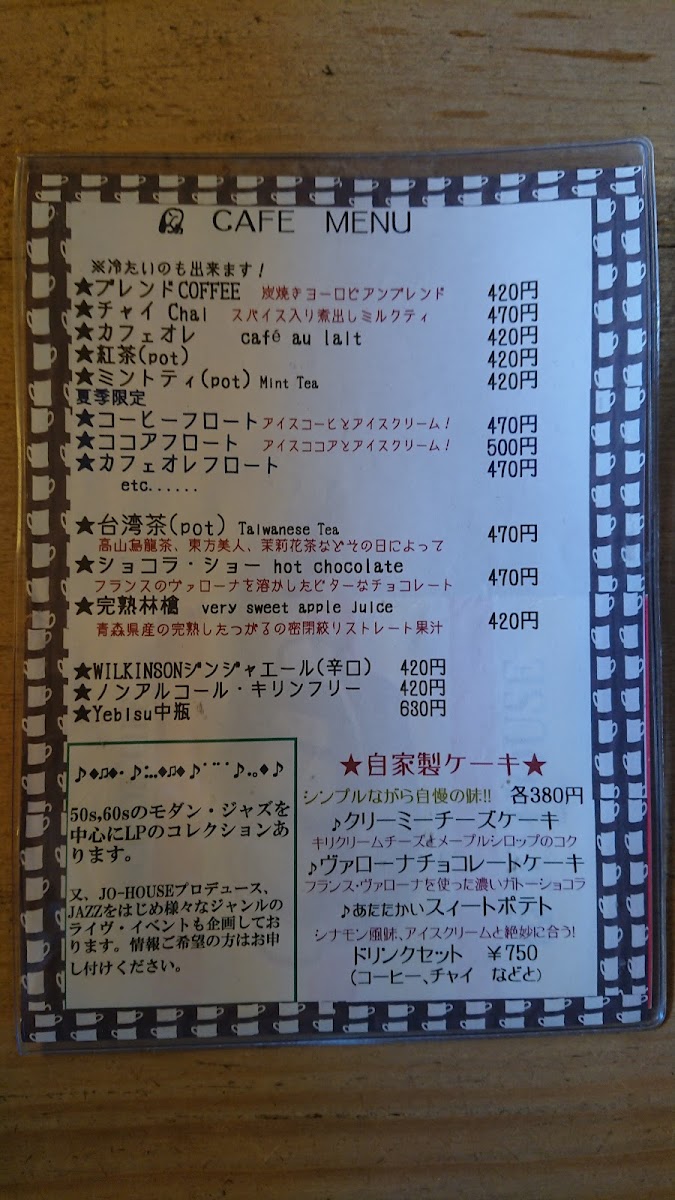 CAFE MENU
※冷たいのも出来ます！
★ブレンドCOFFEE 炭焼きヨーロピアンブレンド 420円
★チャイ Chai スパイス入り煮出しミルクティ 470円
★カフェオレ café au lait 420円
★紅茶(pot) 420円
★ミントティ(pot) Mint Tea 420円
夏季限定
★コーヒーフロート アイスコーヒとアイスクリーム！ 470円
★ココアフロート アイスココアとアイスクリーム！ 500円
★カフェオレフロート 470円
etc......
★台湾茶(pot) Taiwanese Tea 470円
高山烏龍茶、東方美人、茉莉花茶などその日によって
★ショコラ・ショー hot chocolate 470円
フランスのヴァローナを溶かしたビターなチョコレート
★完熟林檎 very sweet apple juice 420円
青森県産の完熟したつがるの密閉絞りストレート果汁
★WILKINSONジンジャエール(辛口) 420円
★ノンアルコール・キリンフリー 420円
★Yebisu中瓶 630円
50s,60sのモダン・ジャズを
中心にLPのコレクションあ
ります。
又、JO-HOUSEプロデュース、
JAZZをはじめ様々なジャンルの
ライヴ・イベントも企画してお
ります。情報ご希望の方はお申
し付けください。
★自家製ケーキ★
シンプルながら自慢の味!! 各380円
♪クリーミーチーズケーキ
キリクリームチーズとメープルシロップのコク
♪ヴァローナチョコレートケーキ
フランス・ヴァローナを使った濃いガトーショコラ
♪あたたかいスィートポテト
シナモン風味、アイスクリームと絶妙に合う!
ドリンクセット ￥750
(コーヒー、チャイ などと)